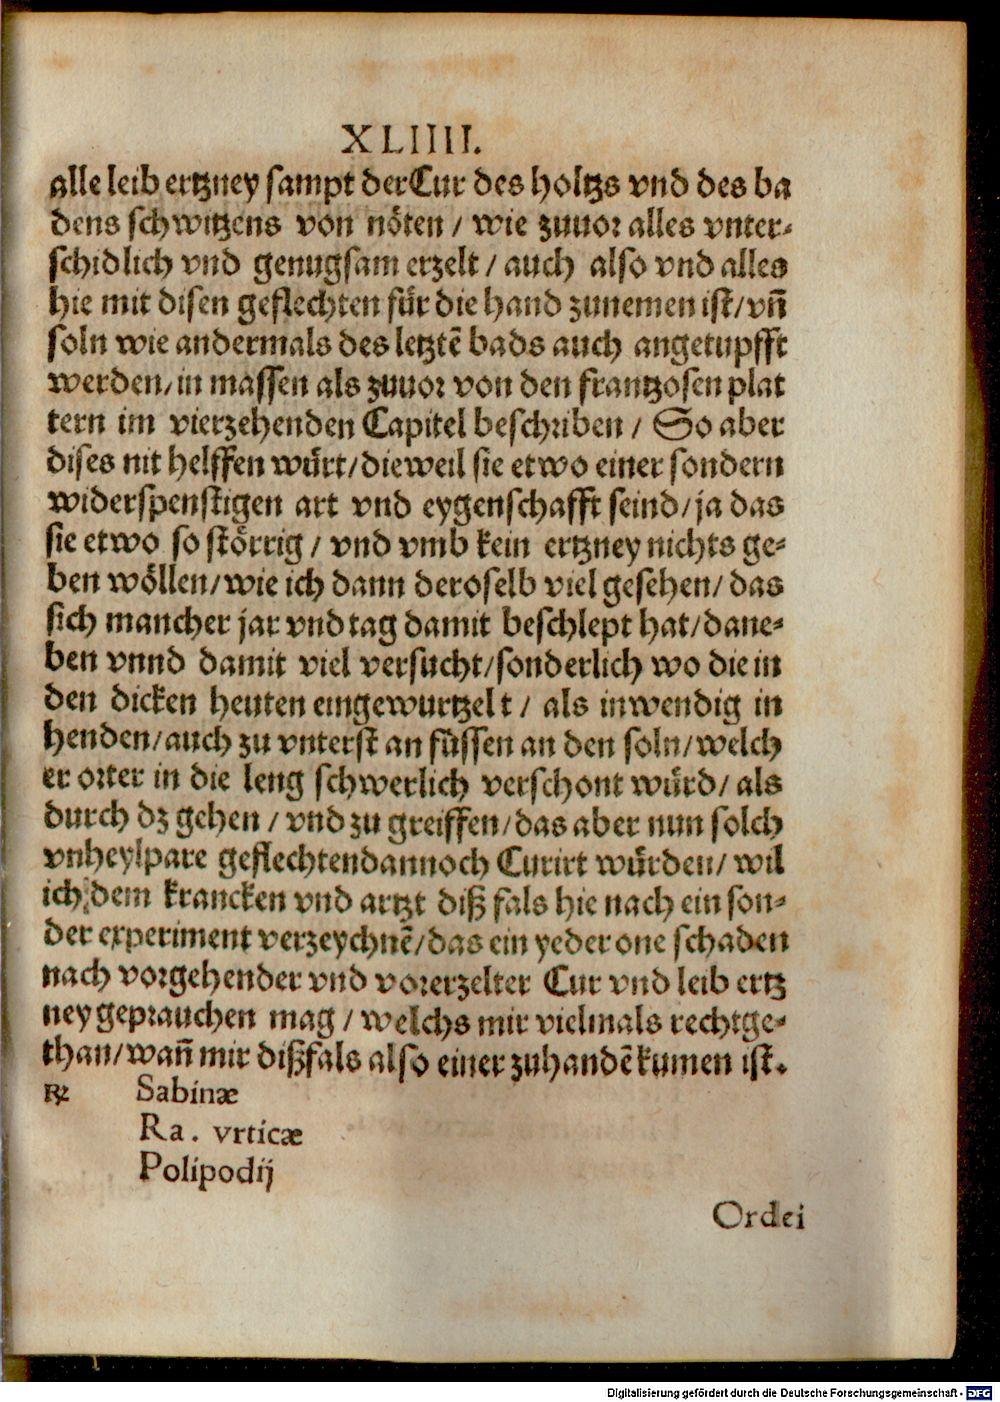 XLIIII.
alle leib ertzney sampt der Cur des holtzs vnd des ba
dens schwitzens von nöten / wie zuuor alles vnter-
schidlich vnd genugsam erzelt / auch also vnd alles
hie mit disen geflechten für die hand zunemen ist/vñ
soln wie andermals des letztē bads auch angetupfft
werden/in massen als zuuor von den frantzosen plat
tern im vierzehenden Capitel beschriben / So aber
dises nit helffen würt/dieweil sie etwo einer sondern
widerspenstigen art vnd eygenschafft seind/ja das
sie etwo so störrig / vnd vmb kein ertzney nichts ge-
ben wöllen/wie ich dann deroselb viel gesehen/ das
sich mancher jar vnd tag damit beschlept hat/dane-
ben vnnd damit viel versucht/sonderlich wo die in
den dicken heuten eingewurtzelt / als inwendig in
henden/auch zu vnterst an füssen an den soln/welch
er orter in die leng schwerlich verschont würd/ als
durch dz gehen / vnd zu greiffen/das aber nun solch
vnheylpare geflechten dannoch Curirt würden/ wil
ich dem krancken vnd artzt diß fals hie nach ein son-
der experiment verzeychnē/das ein yeder one schaden
nach vorgehender vnd vorerzelter Cur vnd leib ertz
ney geprauchen mag / welchs mir vielmals recht ge-
than/wañ mir dißfals also einer zuhandē kumen ist.
℞ Sabinæ
Ra. vrticæ
Polipodij
Ordei
Digitalisierung gefördert durch die Deutsche Forschungsgemeinschaft - DFG